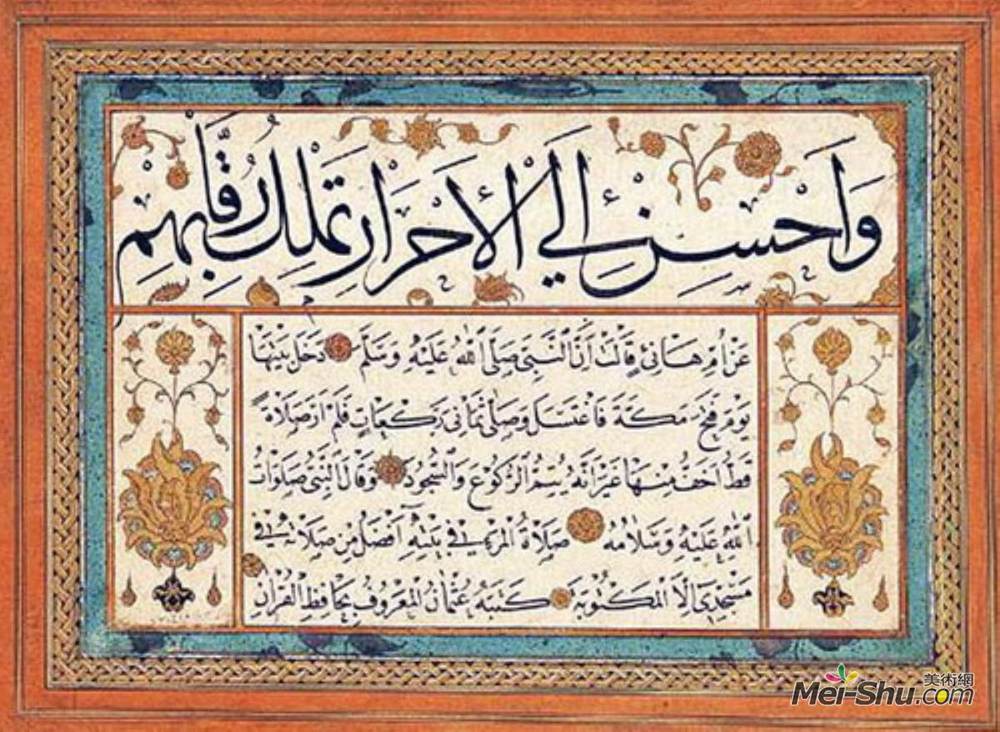 وَاَحْسِنْ اِلَى الْأَحْرَارِ تَمْلِكْ رِقَابَهُمْ
عَنْ اُمِّ هَانِئٍ قَالَتْ اِنَّ النَّبِيَّ صَلَّى اللهُ عَلَيْهِ وَسَلَّمَ دَخَلَ بَيْتَهَا
يَوْمَ فَتْحِ مَكَّةَ فَاغْتَسَلَ وَصَلَّى ثَمَانِيَ رَكَعَاتٍ فَلَمْ اَرَ صَلَاةً
قَطُّ اَخَفَّ مِنْهَا غَيْرَ اَنَّهُ يُتِمُّ الرُّكُوعَ وَالسُّجُودَ وَقَالَ النَّبِيُّ صَلَوَاتُ
اللهِ عَلَيْهِ وَسَلَامُهُ صَلَاةُ الْمَرْءِ فِي بَيْتِهِ اَفْضَلُ مِنْ صَلَاتِهِ فِي
مَسْجِدِي اِلَّا الْمَكْتُوبَةَ كَتَبَهُ عُثْمَانُ الْمَعْرُوفُ بِحَافِظِ الْقُرْاٰنِ
美術網
Mei-Shu.com